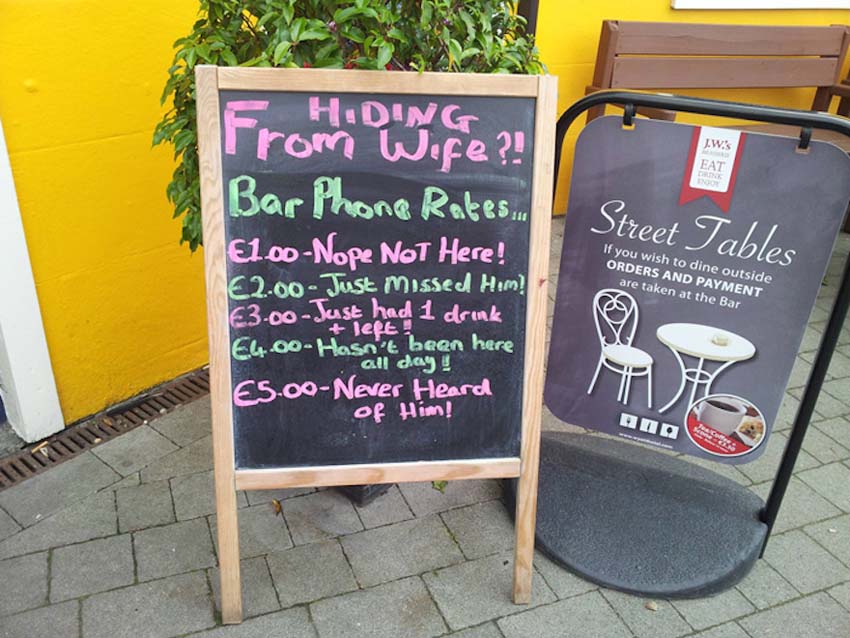 HiDiNG
From Wife?!
Bar Phone Rates...
€1.00-Nope NoT Here!
€2.00-Just Missed Him!
€3.00-Just had 1 drink
+ left!!
€4.00-Hasn't been here
all day!!
€5.00-Never Heard
of Him!
J.W.'s
EAT
DRINK
ENJOY
Street Tables
If you wish to dine outside
ORDERS AND PAYMENT
are taken at the Bar
Tea/Coffee &
Scone